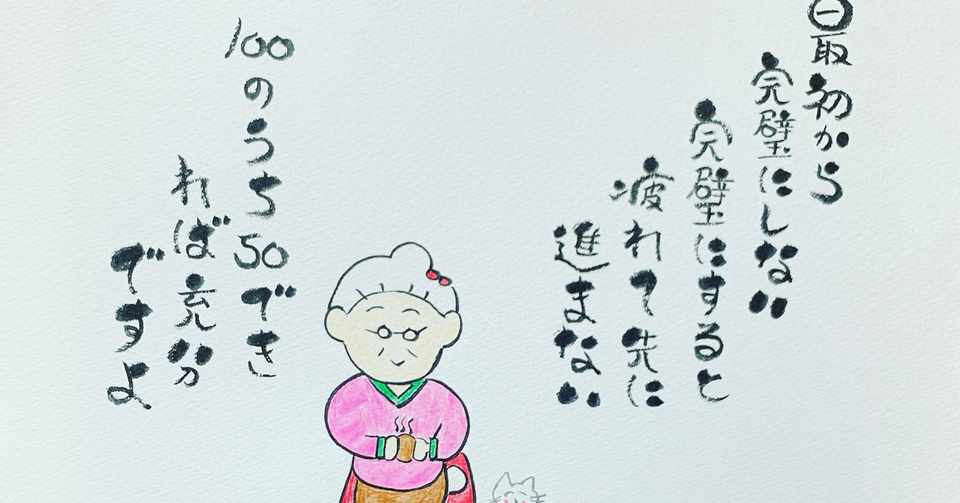 最初から
完璧にしない
完璧にすると
疲れて先に
進まない
100のうち50でき
れば充分
ですよ